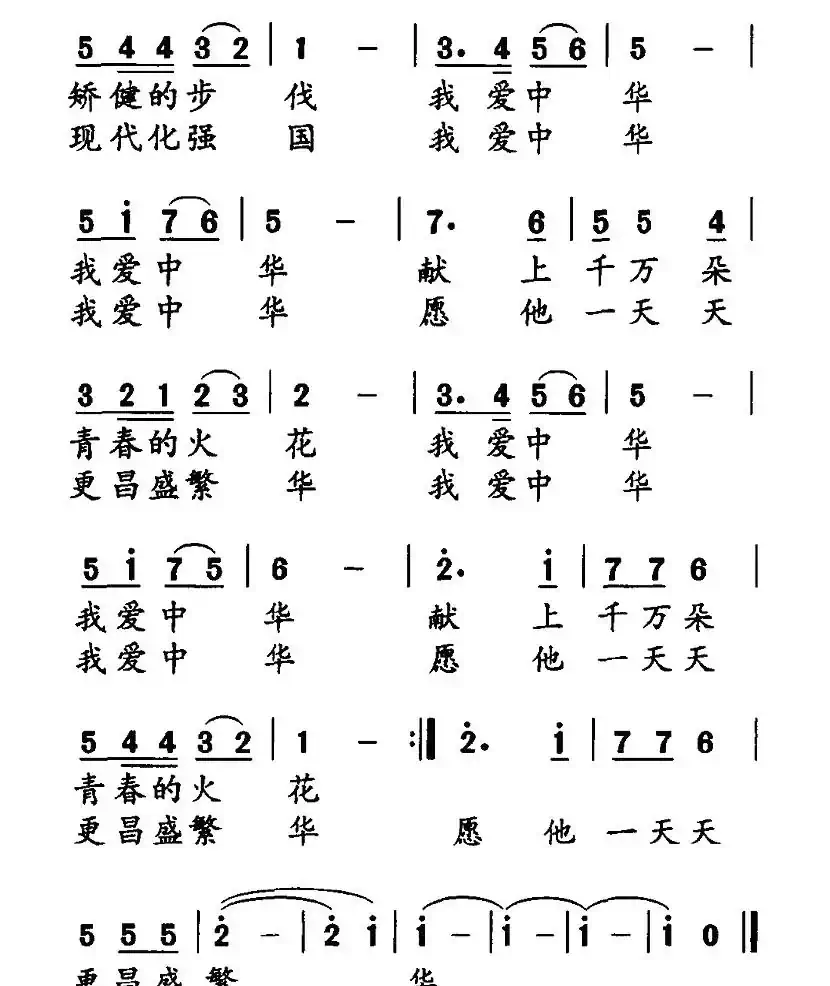 5 4 4 3 2 | 1 - | 3. 4 5 6 | 5 - |
矫健的步 伐 我 爱中 华
现代化强 国 我 爱中 华
5 i 7 6 | 5 - | 7. 6 | 5 5 4 |
我爱中 华 献 上 千万 朵
我爱中 华 愿 他 一天 天
3 2 1 2 3 | 2 - | 3. 4 5 6 | 5 - |
青春的火 花 我 爱中 华
更昌盛繁 华 我 爱中 华
5 i 7 5 | 6 - | 2̇. i | 7 7 6 |
我爱中 华 献 上 千万朵
我爱中 华 愿 他 一天天
5 4 4 3 2 | 1 - :‖ 2̇. i | 7 7 6 |
青春的火 花
更昌盛繁 华 愿 他 一天天
5 5 5 | 2̇ - | 2̇ i | i - | i - | i - | i 0 ‖
更昌盛 繁 华